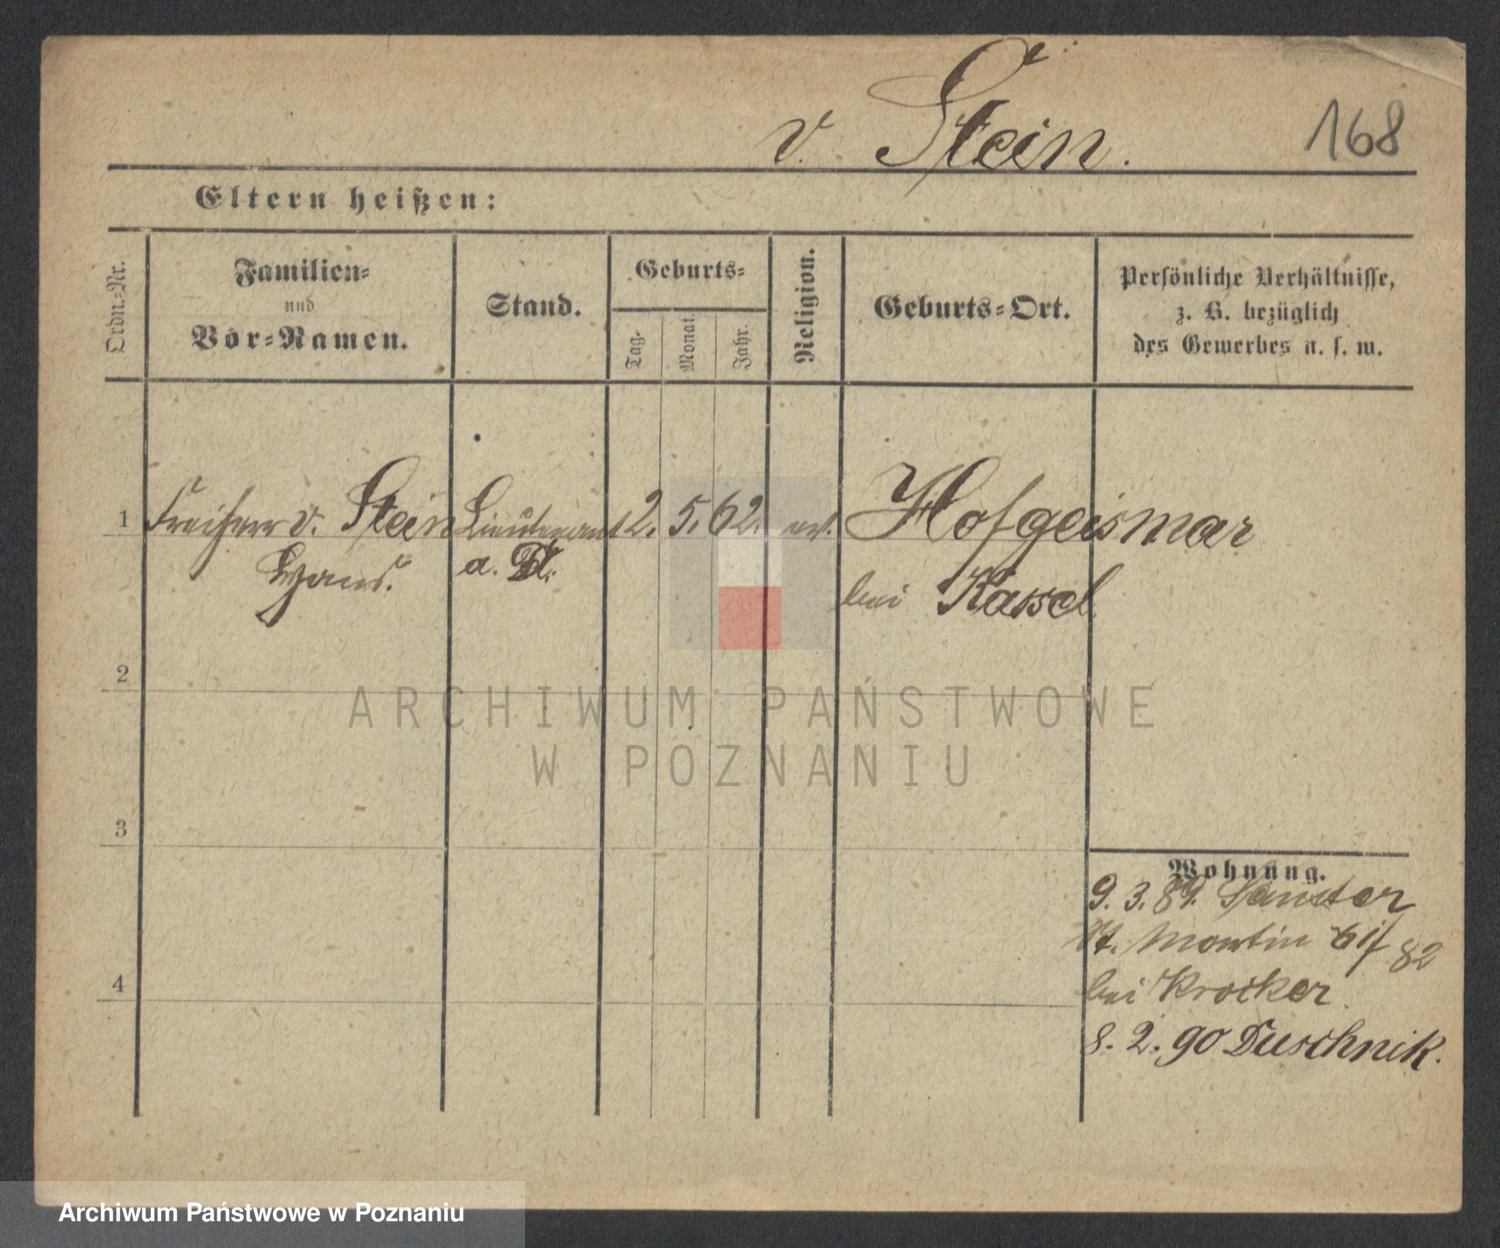 v. Stein.
168
Eltern heißen:
Ordn.-Nr.
Familien-
und
Vor-Namen.
Stand.
Geburts-
Tag.
Monat.
Jahr.
Religion.
Geburts-Ort.
Persönliche Verhältnisse,
z. B. bezüglich
des Gewerbes u. s. w.
1 Freiherr v. Stein Lieutenant 2. 5. 62. ev. Hofgeismar
Hans. a. D. bei Kassel
2
3
4
Wohnung.
9. 3. 89.
St. Martin 61/82
bei Krocker
8. 2. 90 Duschnik.
ARCHIWUM PAŃSTWOWE
W POZNANIU
Archiwum Państwowe w Poznaniu